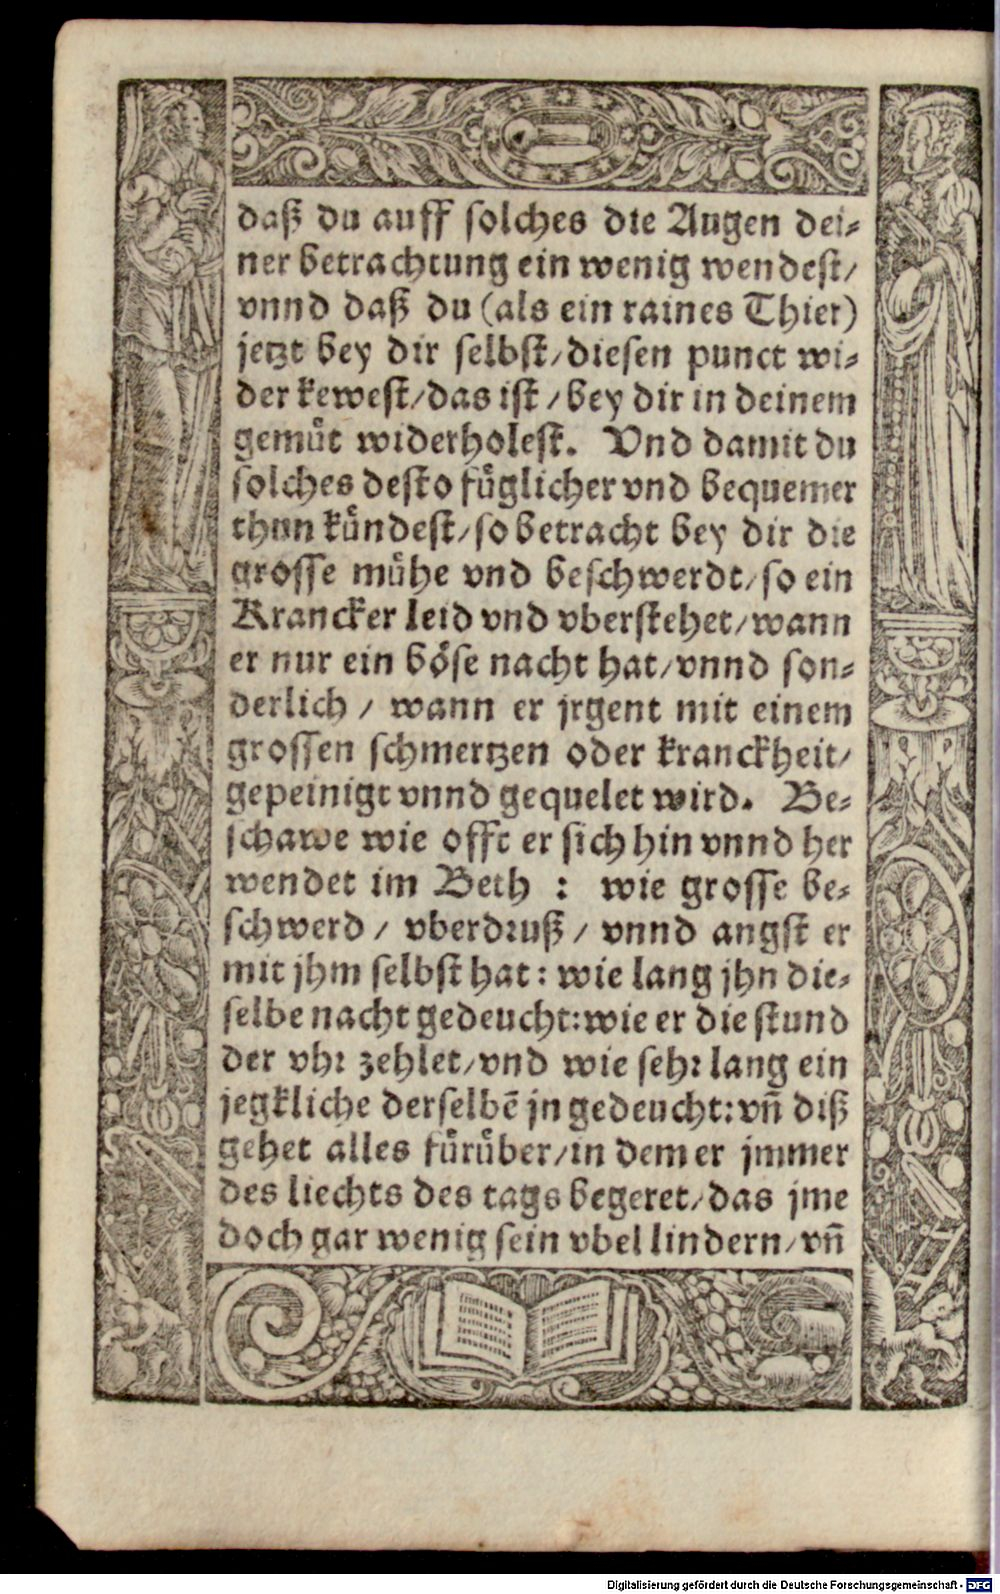 daß du auff solches die Augen dei⸗
ner betrachtung ein wenig wendest/
vnnd daß du (als ein raines Thier)
jetzt bey dir selbst/diesen punct wi⸗
der kewest/das ist/bey dir in deinem
gemuͤt widerholest. Vnd damit du
solches desto fuͤglicher vnd bequemer
thun kuͤndest/so betracht bey dir die
grosse muͤhe vnd beschwerdt/so ein
Krancker leid vnd vberstehet/wann
er nur ein boͤse nacht hat/vnnd son⸗
derlich/ wann er jrgent mit einem
grossen schmertzen oder kranckheit/
gepeinigt vnnd gequelet wird. Be⸗
schawe wie offt er sich hin vnnd her
wendet im Beth : wie grosse be⸗
schwerd/ vberdꝛuß/ vnnd angst er
mit jhm selbst hat: wie lang jhn die⸗
selbe nacht gedeucht:wie er die stund
der vhꝛ zehlet/vnd wie sehꝛ lang ein
jegkliche derselbē jn gedeucht:vñ diß
gehet alles fuͤruͤber/in dem er jmmer
des liechts des tags begeret/das jme
doch gar wenig sein vbel lindern/vñ
Digitalisierung gefördert durch die Deutsche Forschungsgemeinschaft - DFG